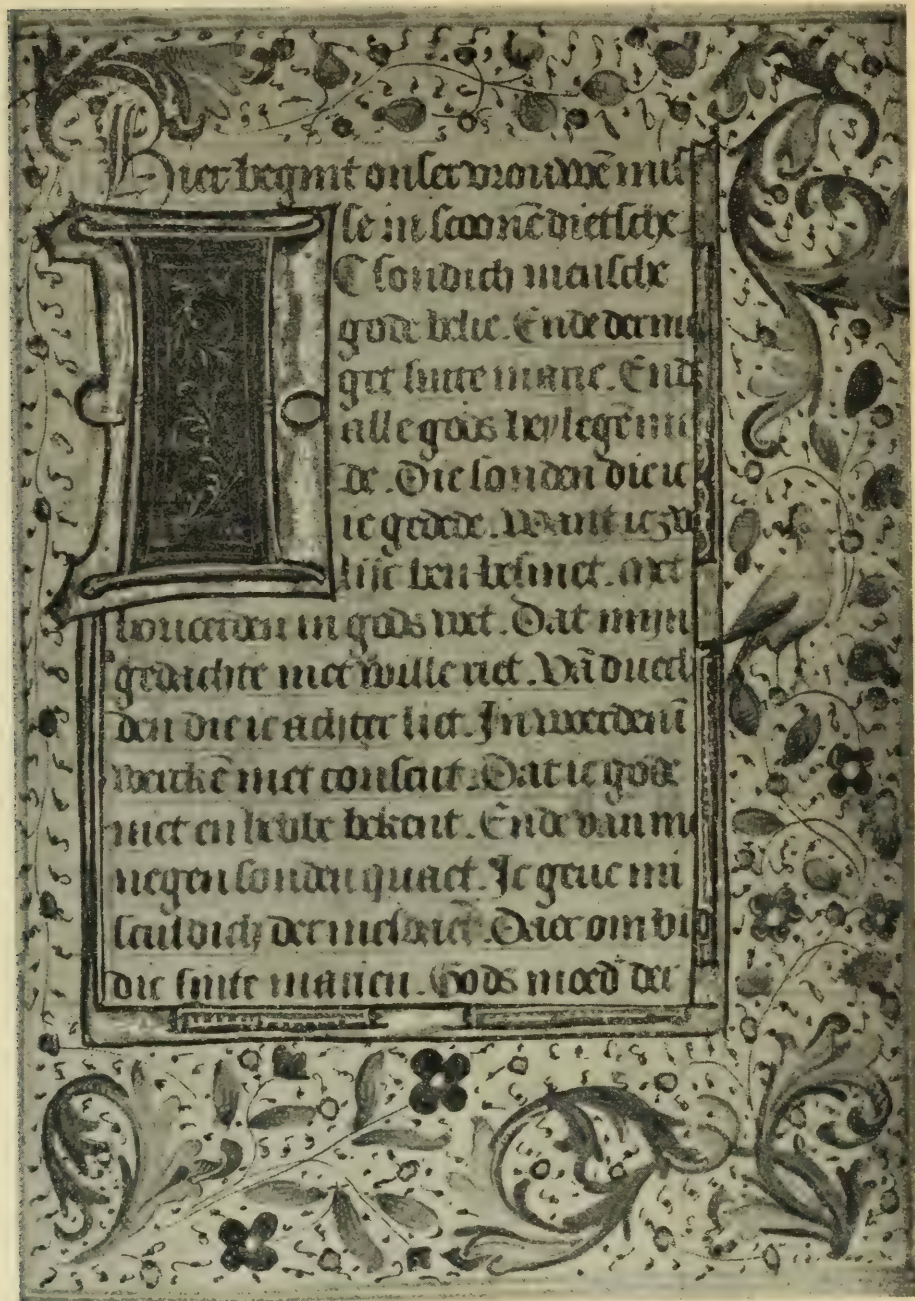 Hier begint onser vrouwē mis
se in scoonē dietsche
C sondich mensche
gode belie. Ende der ma
get sinte marie. End
alle gods heylegē me
de. Die sonden die ic
ie gedede. Want ic zu
lije ben besmet. Met
houerden in gods wet. Dat mijn
gedachte met wille riet. Vā duech
den die ic achter liet. In woerden ī
werckē met consent. Dat ic gode
niet en hebbe bekent. Ende van m
negen sonden quaet. Ic geue mi
sculdich der mesdaet. Daer om bid
die sinte marien. Gods moed der